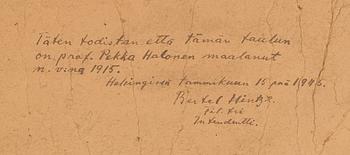 Täten todistan että tämän taulun
on prof. Pekka Halonen maalanut
n. v:na 1915.
Helsingissä tammikuun 15 pnä 1946.
Bertel Hintze.
Fil. tri
Intendentti.